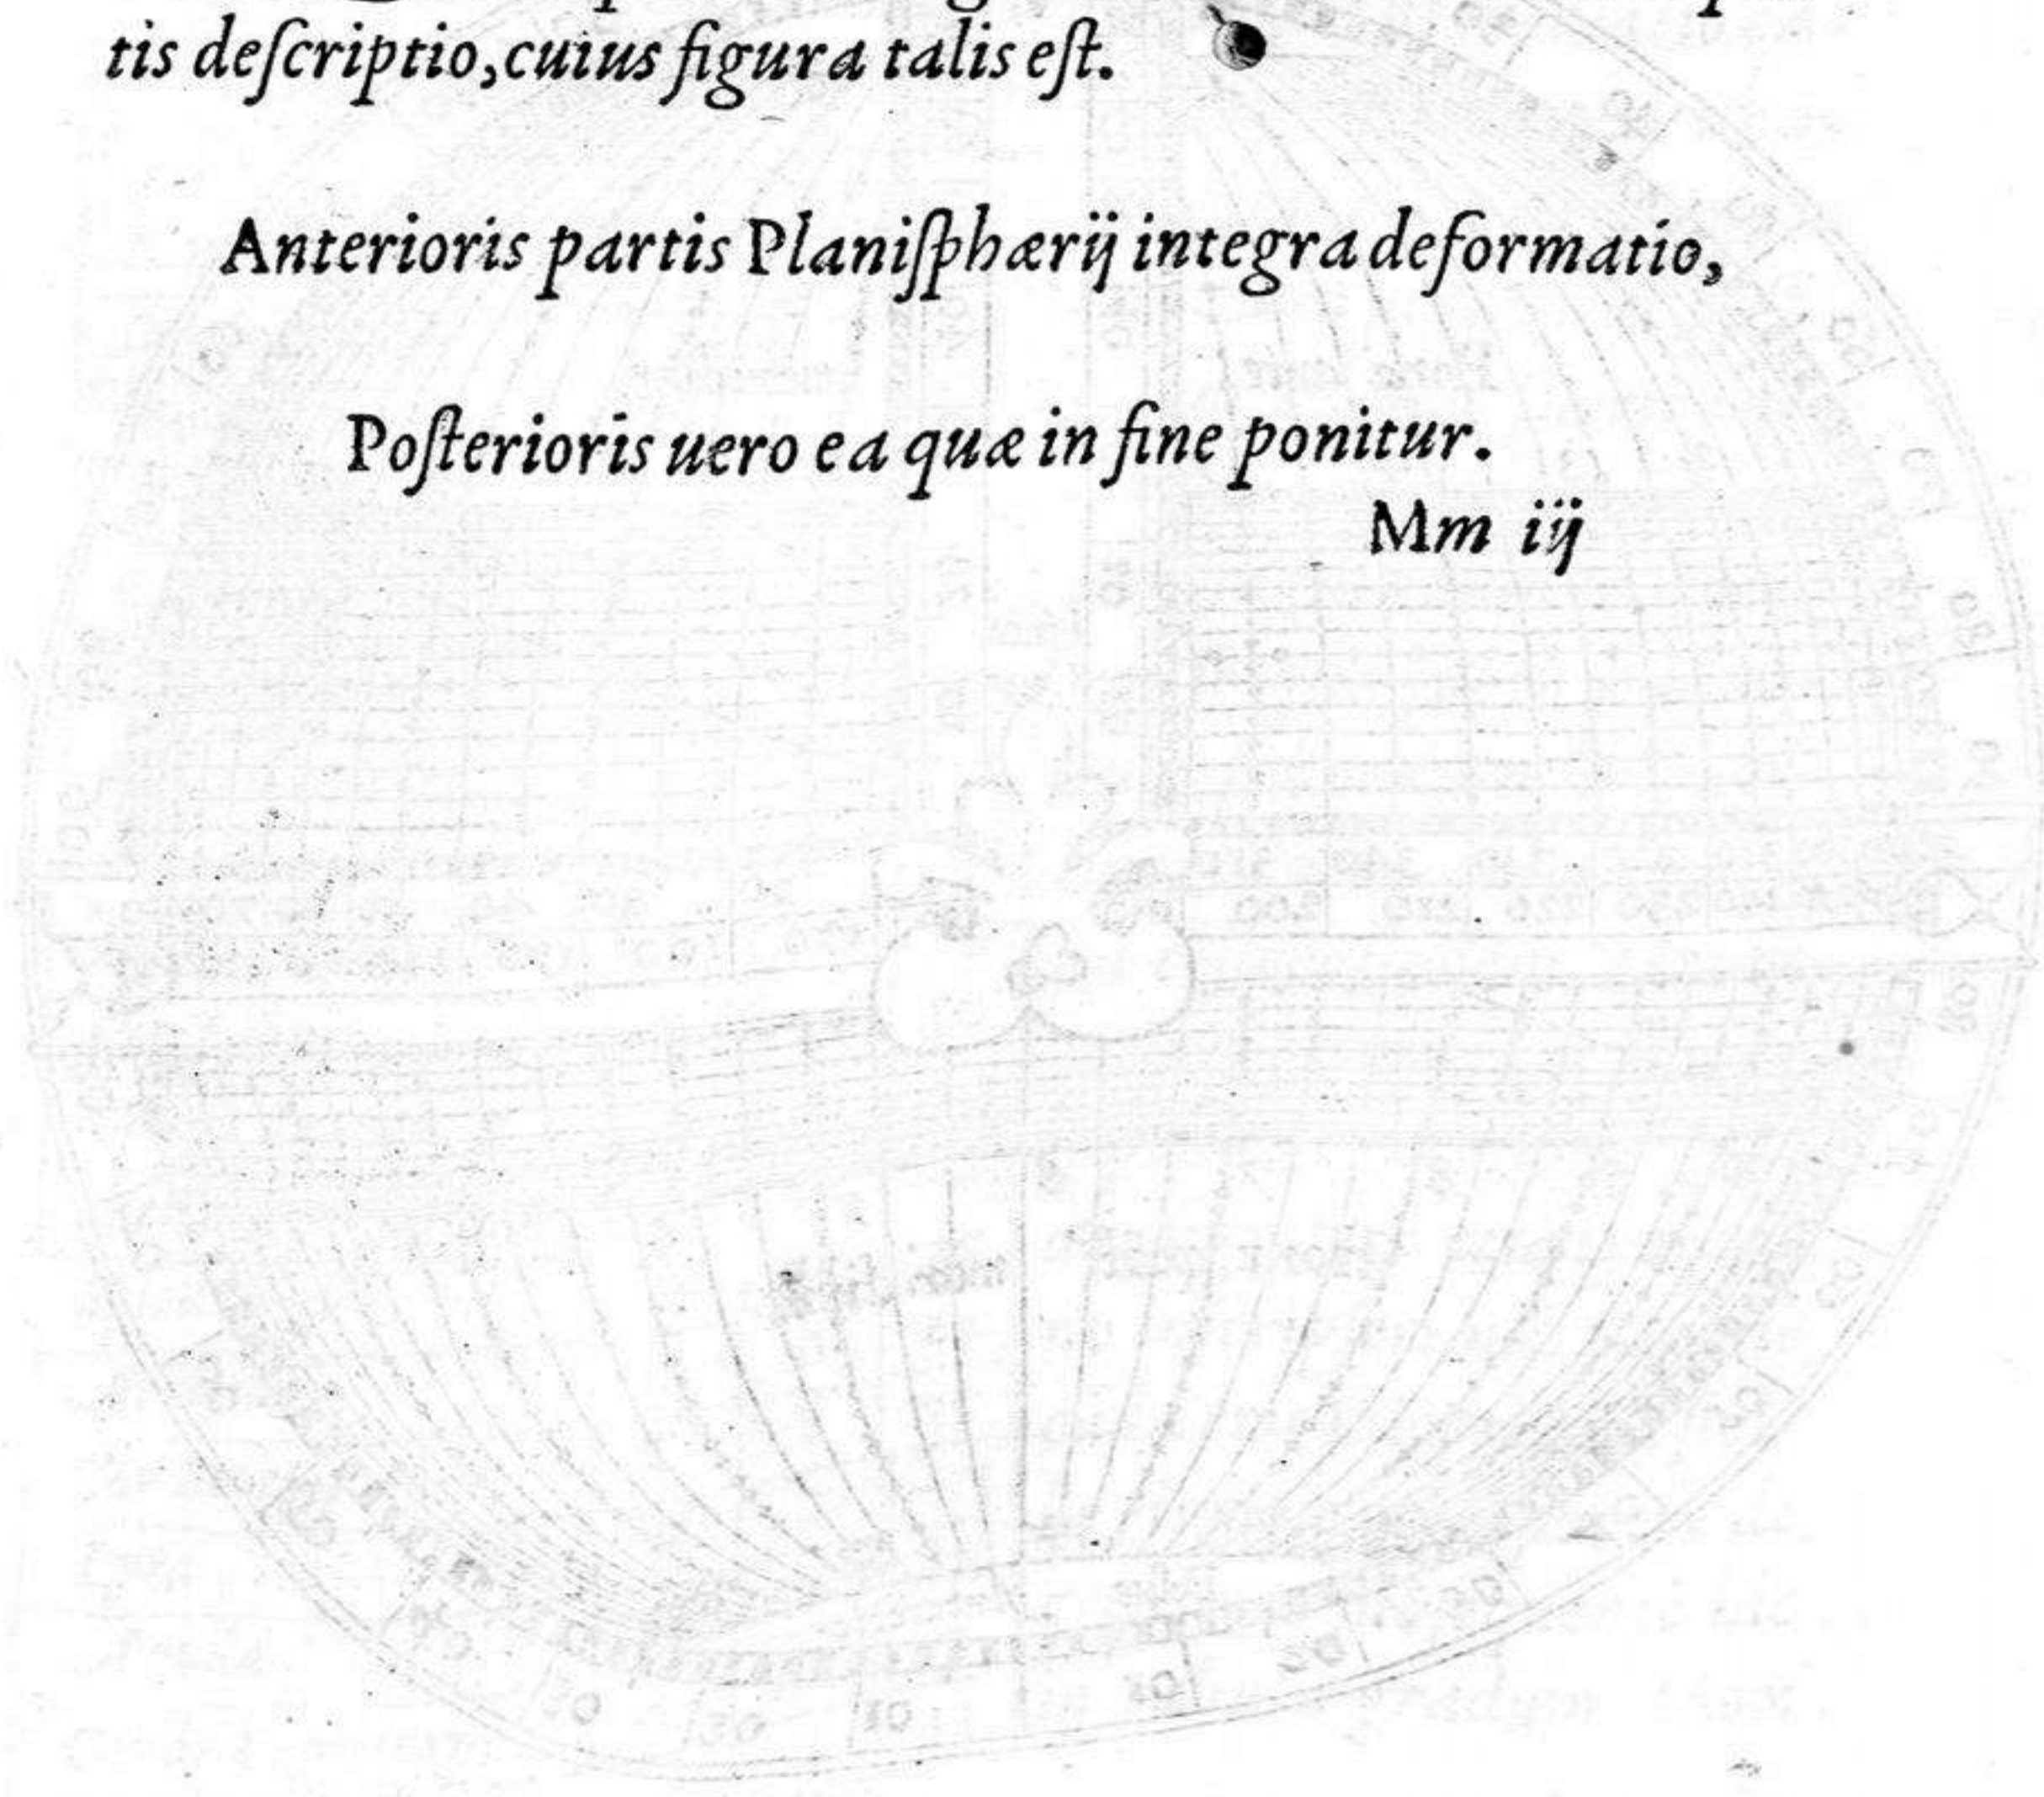 tis deſcriptio, cuius figura talis eſt.
Anterioris partis Planiſphærij integra deformatio,
Poſterioris uero ea quæ in fine ponitur.
Mm iij